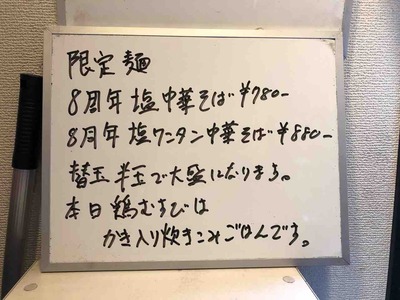 限定麺
8周年 塩中華そば ¥780-
8周年 塩ワンタン中華そば ¥880-
替玉 半玉で大盛になります。
本日鶏むすびは
かき入り炊きこみごはんです。